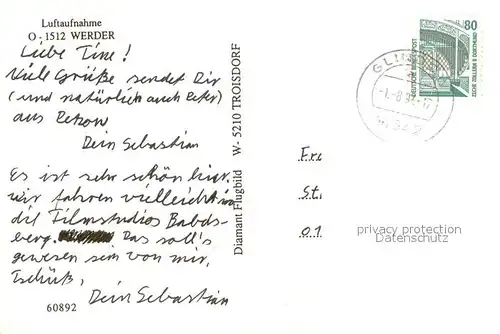 Luftaufnahme
O - 1512 WERDER
Liebe Tine!
Viele Grüße sendet Dir
(und natürlich auch Peter)
aus Petzow
Dein Sebastian
Es ist sehr schön hier,
wir fahren vielleicht in
die Filmstudios Babels-
berg. Das soll's
gewesen sein von mir,
Tschüß,
Dein Sebastian
60892
Diamant Flugbild W- 5210 TROISDORF
80
DEUTSCHE BUNDESPOST
ZECHE ZOLLERN II DORTMUND
-1.-8.92-17
Fr
St.
O 1
privacy protection
Datenschutz